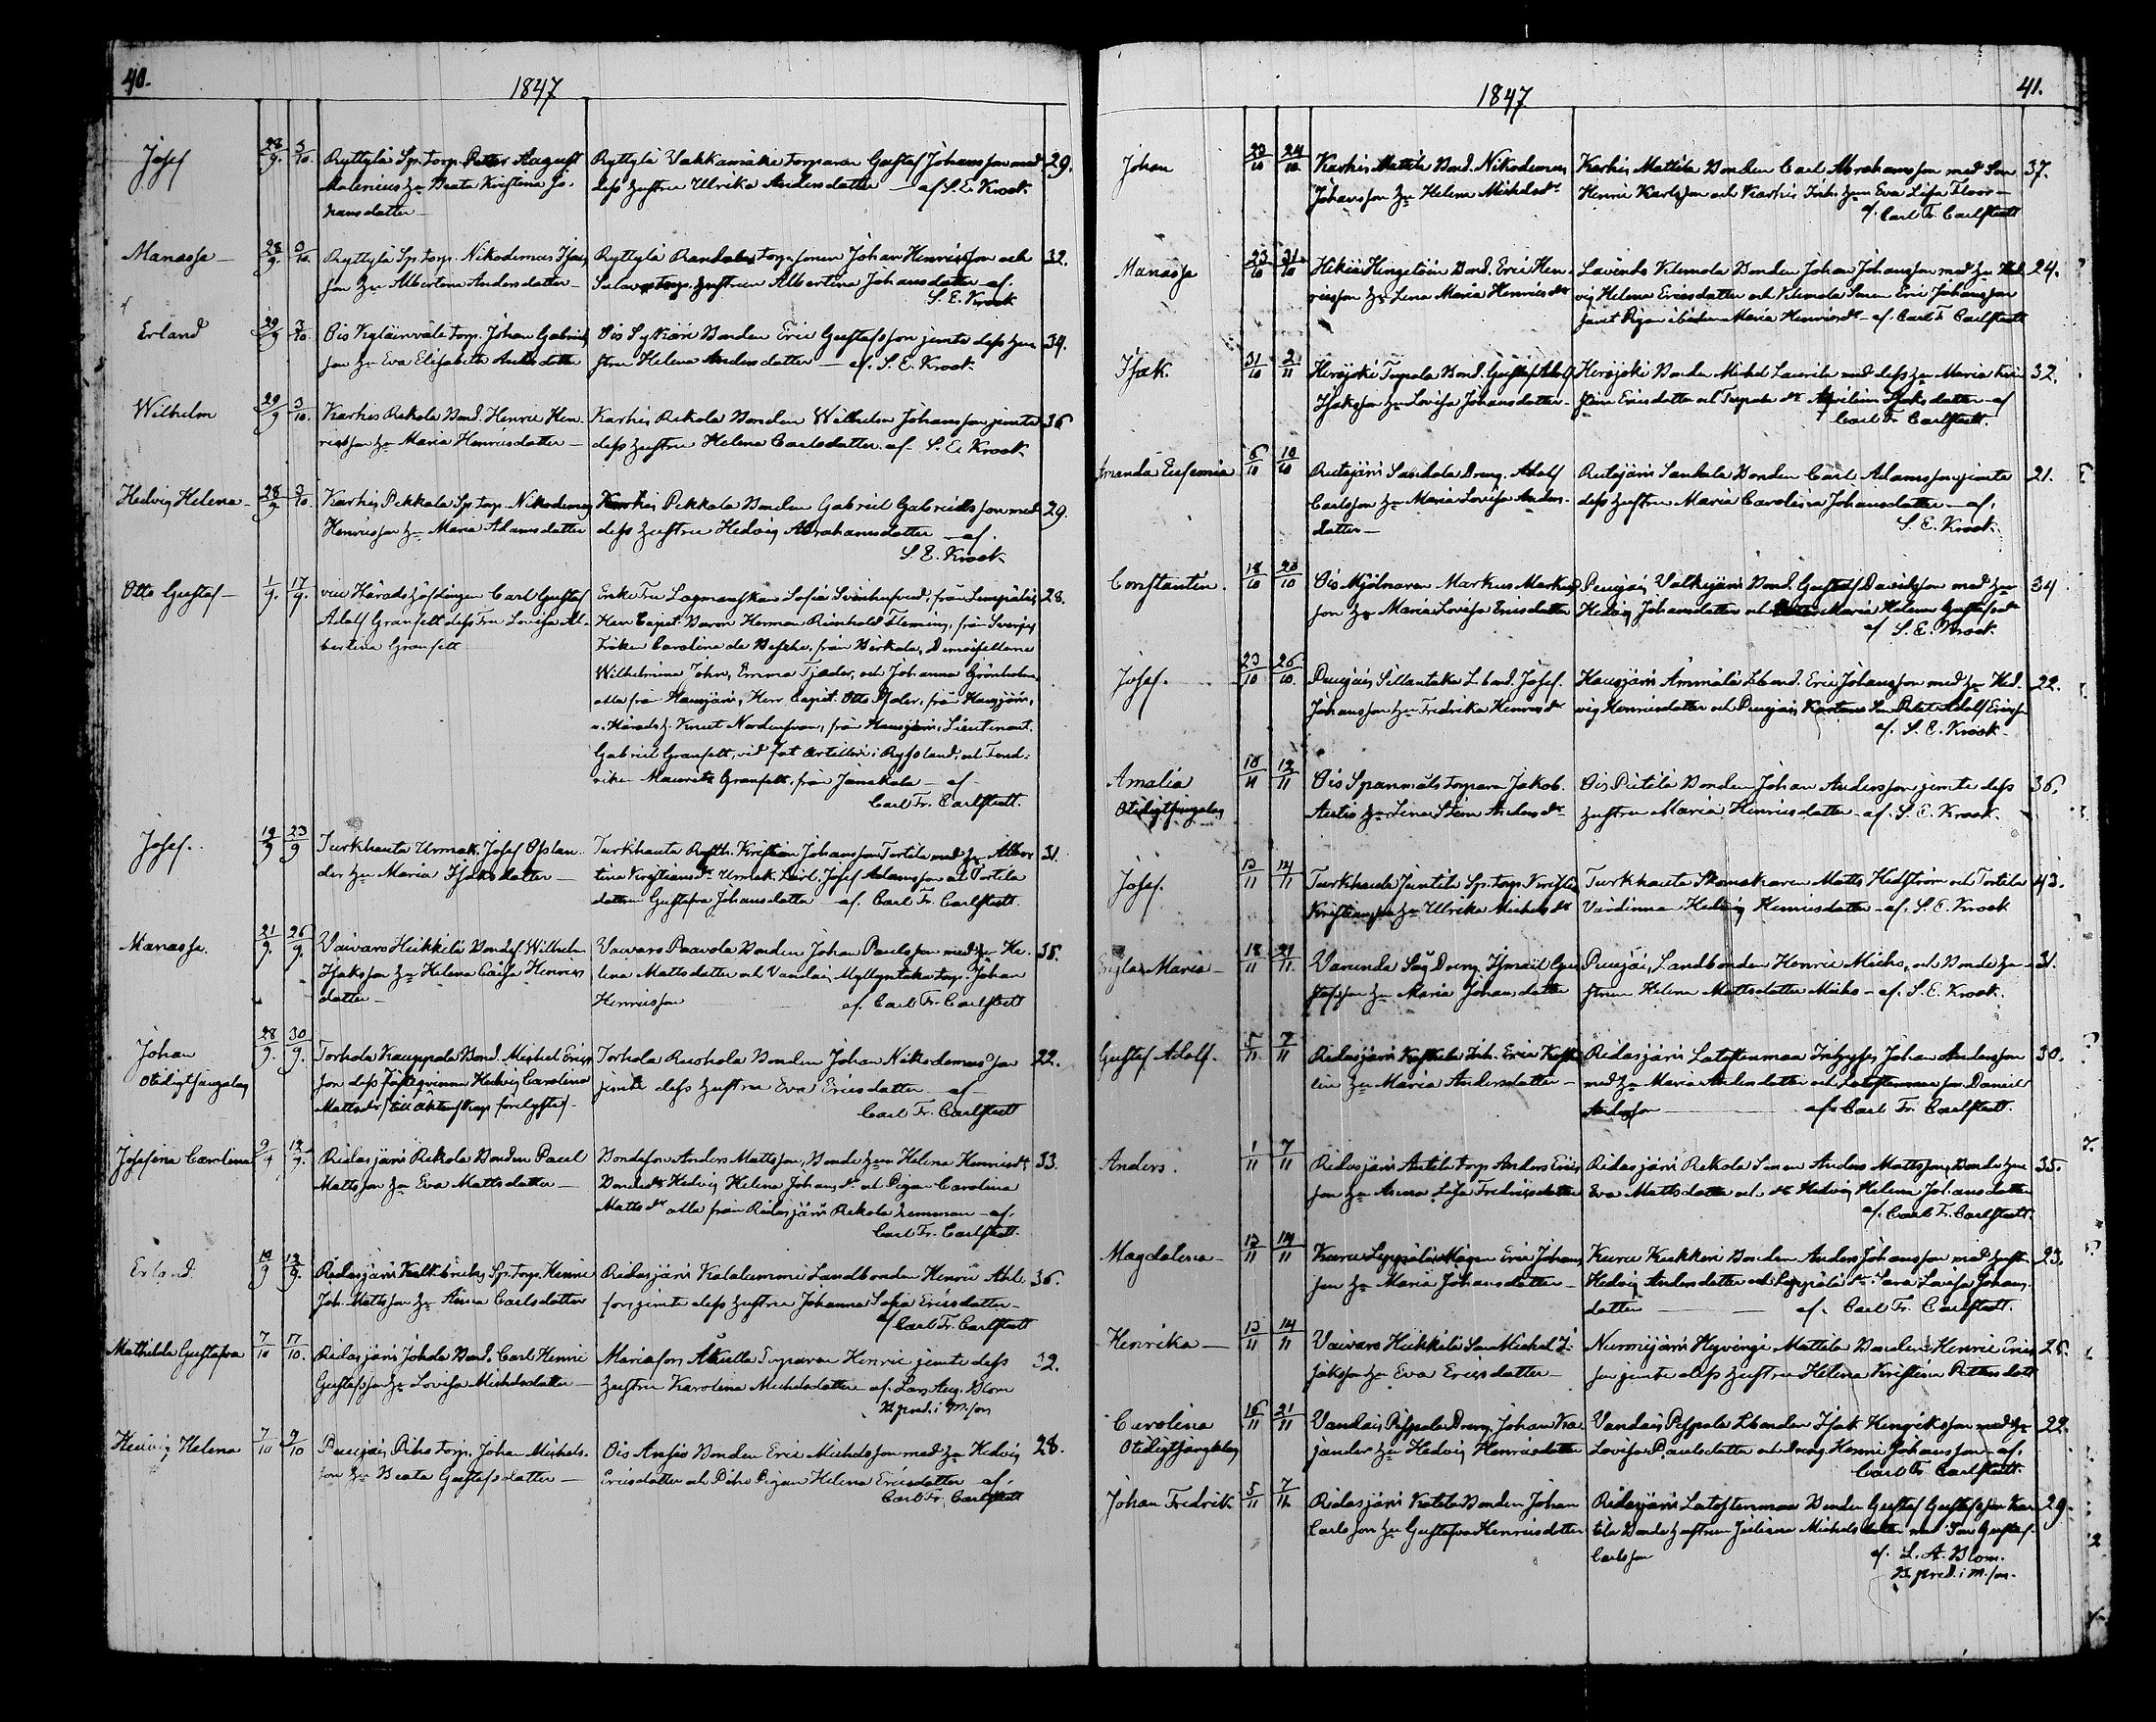 40.
1847
Josef
28/9. 3/10.
Ryttylä Sp. torp. Petter August
Malenius h. Beata Kristina Jo-
hansdotter
Ryttylä torparen Gustaf Johansson med
dess hustru Ulrika Andersdotter — af S. E. Krook.
29.
Manasse
28/9. 3/10.
Ryttylä Sp. torp. Nikodemus Isaks
son h. Albertina Andersdotter
Ryttylä torp. sonen Johan Henriksson och
torp. hustrun Albertina Johansdotter af.
S. E. Krook
32.
Erland
29/9 3/10.
Ois torp. Johan Gabriels
son h. Eva Elisabeth Andersdotter
Ois Bonden Eric Gustafsson jemte dess hu-
stru Helena Andersdotter — af. S. E. Krook.
34.
Wilhelm
29/9 3/10.
Karhis Rekola Bond. Henric Hen-
ricsson h. Maria Henricsdotter
Karhis Rekola Bonden Wilhelm Johansson jemte
dess hustru Helena Carlsdotter. af S. E. Krook.
36
Hedvig Helena
28/9 3/10.
Karhis Pekkala Sp. torp. Nikodemus
Henricsson h. Maria Adamsdotter
Karhis Pekkala Bonden Gabriel Gabrielsson med
dess hustru Hedvig Abrahamsdotter — af.
S. E. Krook
29.
Otto Gustaf
1/9. 17/9.
vice Häradshöfdingen Carl Gustaf
Adolf Granfelt dess Fru Lovisa Al-
bertina Granfelt
Enke Fru Lagmanskan Sofia Svinhufvud, från Lempälä,
Herr Capit. Baron Herman Reinhold Fleming, från Sverige,
Fröken Carolina de Besche, från Birkala, Demoisellerne
Wilhelmina John, Emma Tjæder, och Johanna Grönholm,
alla från Hausjärvi, Herr Capit. Otto från Hausjärvi,
v. Häradsh. Knut Nordensvan, från Hausjärvi, Lieutenant.
Gabriel Granfelt, vid Fot Artilleri i Ryssland, och Fend-
riken Mauritz Granfelt, från Janakala — af
Carl Fr. Carlstedt.
28.
Josef.
19/9 23/9
Turkhauta Urmak. Josef
h. Maria Isaksdotter
Turkhauta Kristian Johansson Tortila med h. Alber
tina Kristiansdr Urmak. Josef Adamsson och Tortila
dottern Gustafva Johansdotter af. Carl Fr. Carlstedt.
31.
Manasse.
21/9. 26/9.
Vaivars Heikkilä Bondes. Wilhelm
Isaksson h. Helena Caisa Henrics
dotter
Vaivars Paavola Bonden Johan Paulsson med h. He-
lena Mattsdotter och Vandais Myllyntaka torp. Johan
Henricsson af. Carl Fr. Carlstedt
38.
Johan
Otidigt sängelag
28/9. 30/9.
Torhola Kauppola Bond. Michel Erics
son dess Fästeqvinna Hedvig Carolina
Mattsdr / till äktenskap förelyst /
Torhola Ruohola Bonden Johan Nikodemusson
jemte dess hustru Eva Ericsdotter — af —
Carl Fr. Carlstedt
22.
Josefina Carolina
9/9 12/9.
Ridasjärvi Rekola Bonden Paul
Mattsson h. Eva Mattsdotter
Bondeson Anders Mattsson, Bonde hun Helena Henricsdr
Bondedr Hedvig Helena Johansdr och Pigan Carolina
Mattsdr alla från Ridasjärvi Rekola hemman — af.
Carl Fr. Carlstedt.
33.
Erland.
10/9 12/9.
Ridasjärvi Sp. torp. Henric
Joh. Mattsson h. Anna Carlsdotter
Ridasjärvi Kalalammi Landbonden Henric Ahl-
fors jemte dess hustru Johanna Sofia Ericsdotter
af Carl Fr. Carlstedt
36.
Mathilda Gustafva
7/10 17/10.
Ridasjärvi Jokela Bond. Carl Henric
Gustafsson h. Lovisa Michelsdotter
Mariafors Åkulla Torparen Henric jemte dess
hustru Karolina Michelsdotter af. Lars Aug. Blom
Br. pred. i M.fors
32.
Hedvig Helena
7/10 9/10
Puujais Piiho torp. Johan Michels-
son h. Beata Gustafsdotter
Ois Ansio Bonden Eric Michelsson med h. Hedvig
Ericsdotter och Piiho Pigan Helena Ericsdotter af.
Carl Fr. Carlstedt
28.
1847
41.
Johan
23/10 24/10
Karhis Mattila Bond. Nikodemus
Johansson h. Helena Michelsdr
Karhis Mattila Bonden Carl Abrahamsson med Son
Henric Karlsson och Karhis Inh. hun Eva Lisa Floor
af. Carl Fr. Carlstedt
37.
Manasse
23/10 31/10
Hikiä Hingelöin Bond. Eric Hen-
ricsson h. Lena Maria Henricsdr
Lavinto Klemola Bonden Johan Johansson med h. Hed-
vig Helena Ericsdotter och Klemola Sonen Eric Johansson
samt Pigan ibidem Maria Henricsdr — af. Carl Fr. Carlstedt
24.
Isak.
31/10 2/11
Herajoki Torpola Bond. Gustaf Adolf
Isaksson h. Lovisa Johansdotter
Herajoki Bonden Michel Laurila med dess h. Maria Kri-
stina Ericsdotter och Torpola dr Isaksdotter — af
Carl Fr. Carlstedt.
32.
Amanda Eufemia
6/10 10/10
Rutajärvi Dreng. Adolf
Carlsson h. Maria Lovisa Anders-
dotter
Rutajärvi Bonden Carl Adamsson jemte
dess hustru Maria Carolina Johansdotter — af.
S. E. Krook.
21.
Constantin.
18/10 20/10
Ois Mjölnaren Markus Markus
son h. Maria Lovisa Ericsdotter
Puujais Valkijärvi Bond. Gustaf Davidsson med h.
Hedvig Johansdotter och Maria Helena Gustafsdr
af S. E. Krook.
34
Josef.
23/10 26/10.
Puujais Sillantaka L. bond. Josef
Johansson h. Fredrika Henricsdr
Hausjärvi Ämmälä L. bond. Eric Johansson med h. Hed-
vig Henricsdotter och Puujais Son Petter Adolf Ericsson
af. S. E. Krook
22.
Amalia
Otidigt sängelag
10/11 12/11
Ois Spanmåls torparen Jakob
h. Lena Stina Andersdr
Ois Pietilä Bonden Johan Andersson jemte dess
hustru Maria Henricsdotter af. S. E. Krook.
36.
Josef.
12/11 14/11
Turkhauta Juntila Sp. torp. Kristian
Kristiansson h. Ulrika Michelsdr
Turkhauta Skomakaren Matts Hedström och Tortila
Värdinnan Hedvig Henricsdotter — af. S. E. Krook
43.
Engla Maria
18/11 21/11.
Varunda Såg Dreng. Ismael Gu-
stafsson h. Maria Johansdotter
Puujais, Landbonden Henric Michs, och Bonde hu-
strun Helena Mattsdotter Michs — af. S. E. Krook.
31.
Gustaf Adolf.
5/11. 7/11
Ridasjärvi Inh. Eric
h. Maria Andersdotter
Ridasjärvi Latostenmaa Inhyses Johan Andersson
med h. Maria Andersdotter och Latostenmaa son Daniel
Andersson af Carl Fr. Carlstedt.
30.
Anders.
1/11 7/11
Ridasjärvi Antila torp. Anders Erics
son h. Anna Lisa Fredricsdotter
Ridasjärvi Rekola Sonen Anders Mattsson, Bonde hun
Eva Mattsdotter och dr Hedvig Helena Johansdotter
af. Carl Fr. Carlstedt.
35.
Magdalena
12/11 14/11
Kuru Leppälä Mågen Eric Johans
son h. Maria Johansdotter
Kuru Kukkori Bonden Anders Johansson med hust.
Hedvig Andersdotter och Leppälä dr Sara Lovisa Johans-
dotter — af. Carl Fr. Carlstedt.
23.
Henrika
12/11 14/11
Vaivars Heikkilä Son Michel I-
saksson h. Eva Ericsdotter
Nurmijärvi Hyvinge Mattila Bonden Henric Erics
son jemte dess hustru Helena Kristina Pettersdotter
26.
Carolina
Otidigt sängelag
16/11 21/11
Vandais Pispala Dreng Johan Ka-
jander h. Hedvig Henricsdotter
Vandais Pispala L. bonden Isak Henriksson med h.
Lovisa Paulsdotter och Dreng Henric Johansson — af.
Carl Fr. Carlstedt.
22.
Johan Fredrik
5/11 7/11.
Ridasjärvi Katila Bonden Johan
Carlsson h. Gustafva Henricsdotter
Ridasjärvi Latostenmaa Bonden Gustaf Gustafsson Ka-
tila Bonde hustrun Juliana Michelsdotter med Son Gustaf
Carlsson af. L. A. Blom.
Br. pred. i M.fors.
29.